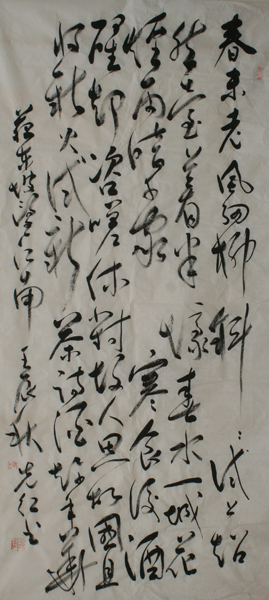 春未老風細柳斜〻試上超
然台上看半壕春水一城花
煙雨暗千家寒食後酒
醒却咨嗟休對故人思故國且
將新火試新茶詩酒趁年華
蘇東坡望江南 壬辰秋 書